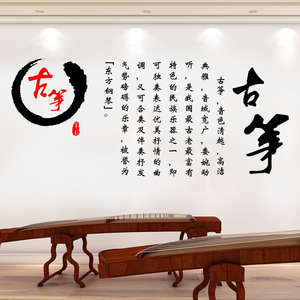 古筝
古筝，音色清越，高洁
典雅，音域宽广，委婉动
听，是我国最古老最富有
特色的民族乐器之一，即
可独奏表达优美抒情的曲
调，又可合奏及伴奏抒发
气势磅礴的乐章，被誉为
「东方钢琴」。
古筝